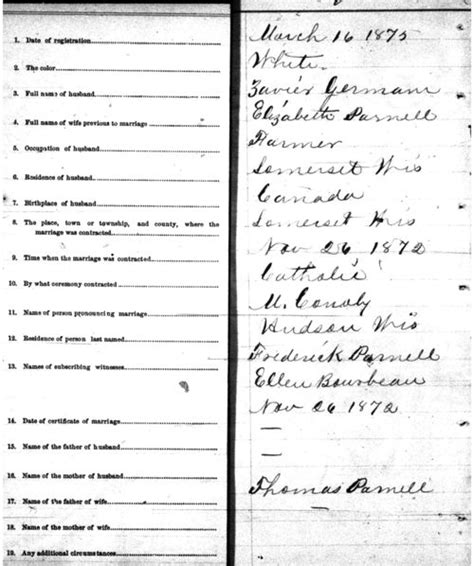 1. Date of registration
2. The color
3. Full name of husband
4. Full name of wife previous to marriage
5. Occupation of husband
6. Residence of husband
7. Birthplace of husband
8. The place, town or township, and county, where the
marriage was contracted
9. Time when the marriage was contracted
10. By what ceremony contracted
11. Name of person pronouncing marriage
12. Residence of person last named
13. Names of subscribing witnesses
14. Date of certificate of marriage
15. Name of the father of husband
16. Name of the mother of husband
17. Name of the father of wife
18. Name of the mother of wife
19. Any additional circumstances
March 16 1875
White
Zavier Germain
Elizabeth Parnell
Farmer
Somerset Wis
Canada
Somerset Wis
Nov 26 1872
Catholic
M. 
Hudson Wis
Frederick Parnell
Ellen Bourbeau
Nov 26 1872
—
—
Thomas Parnell